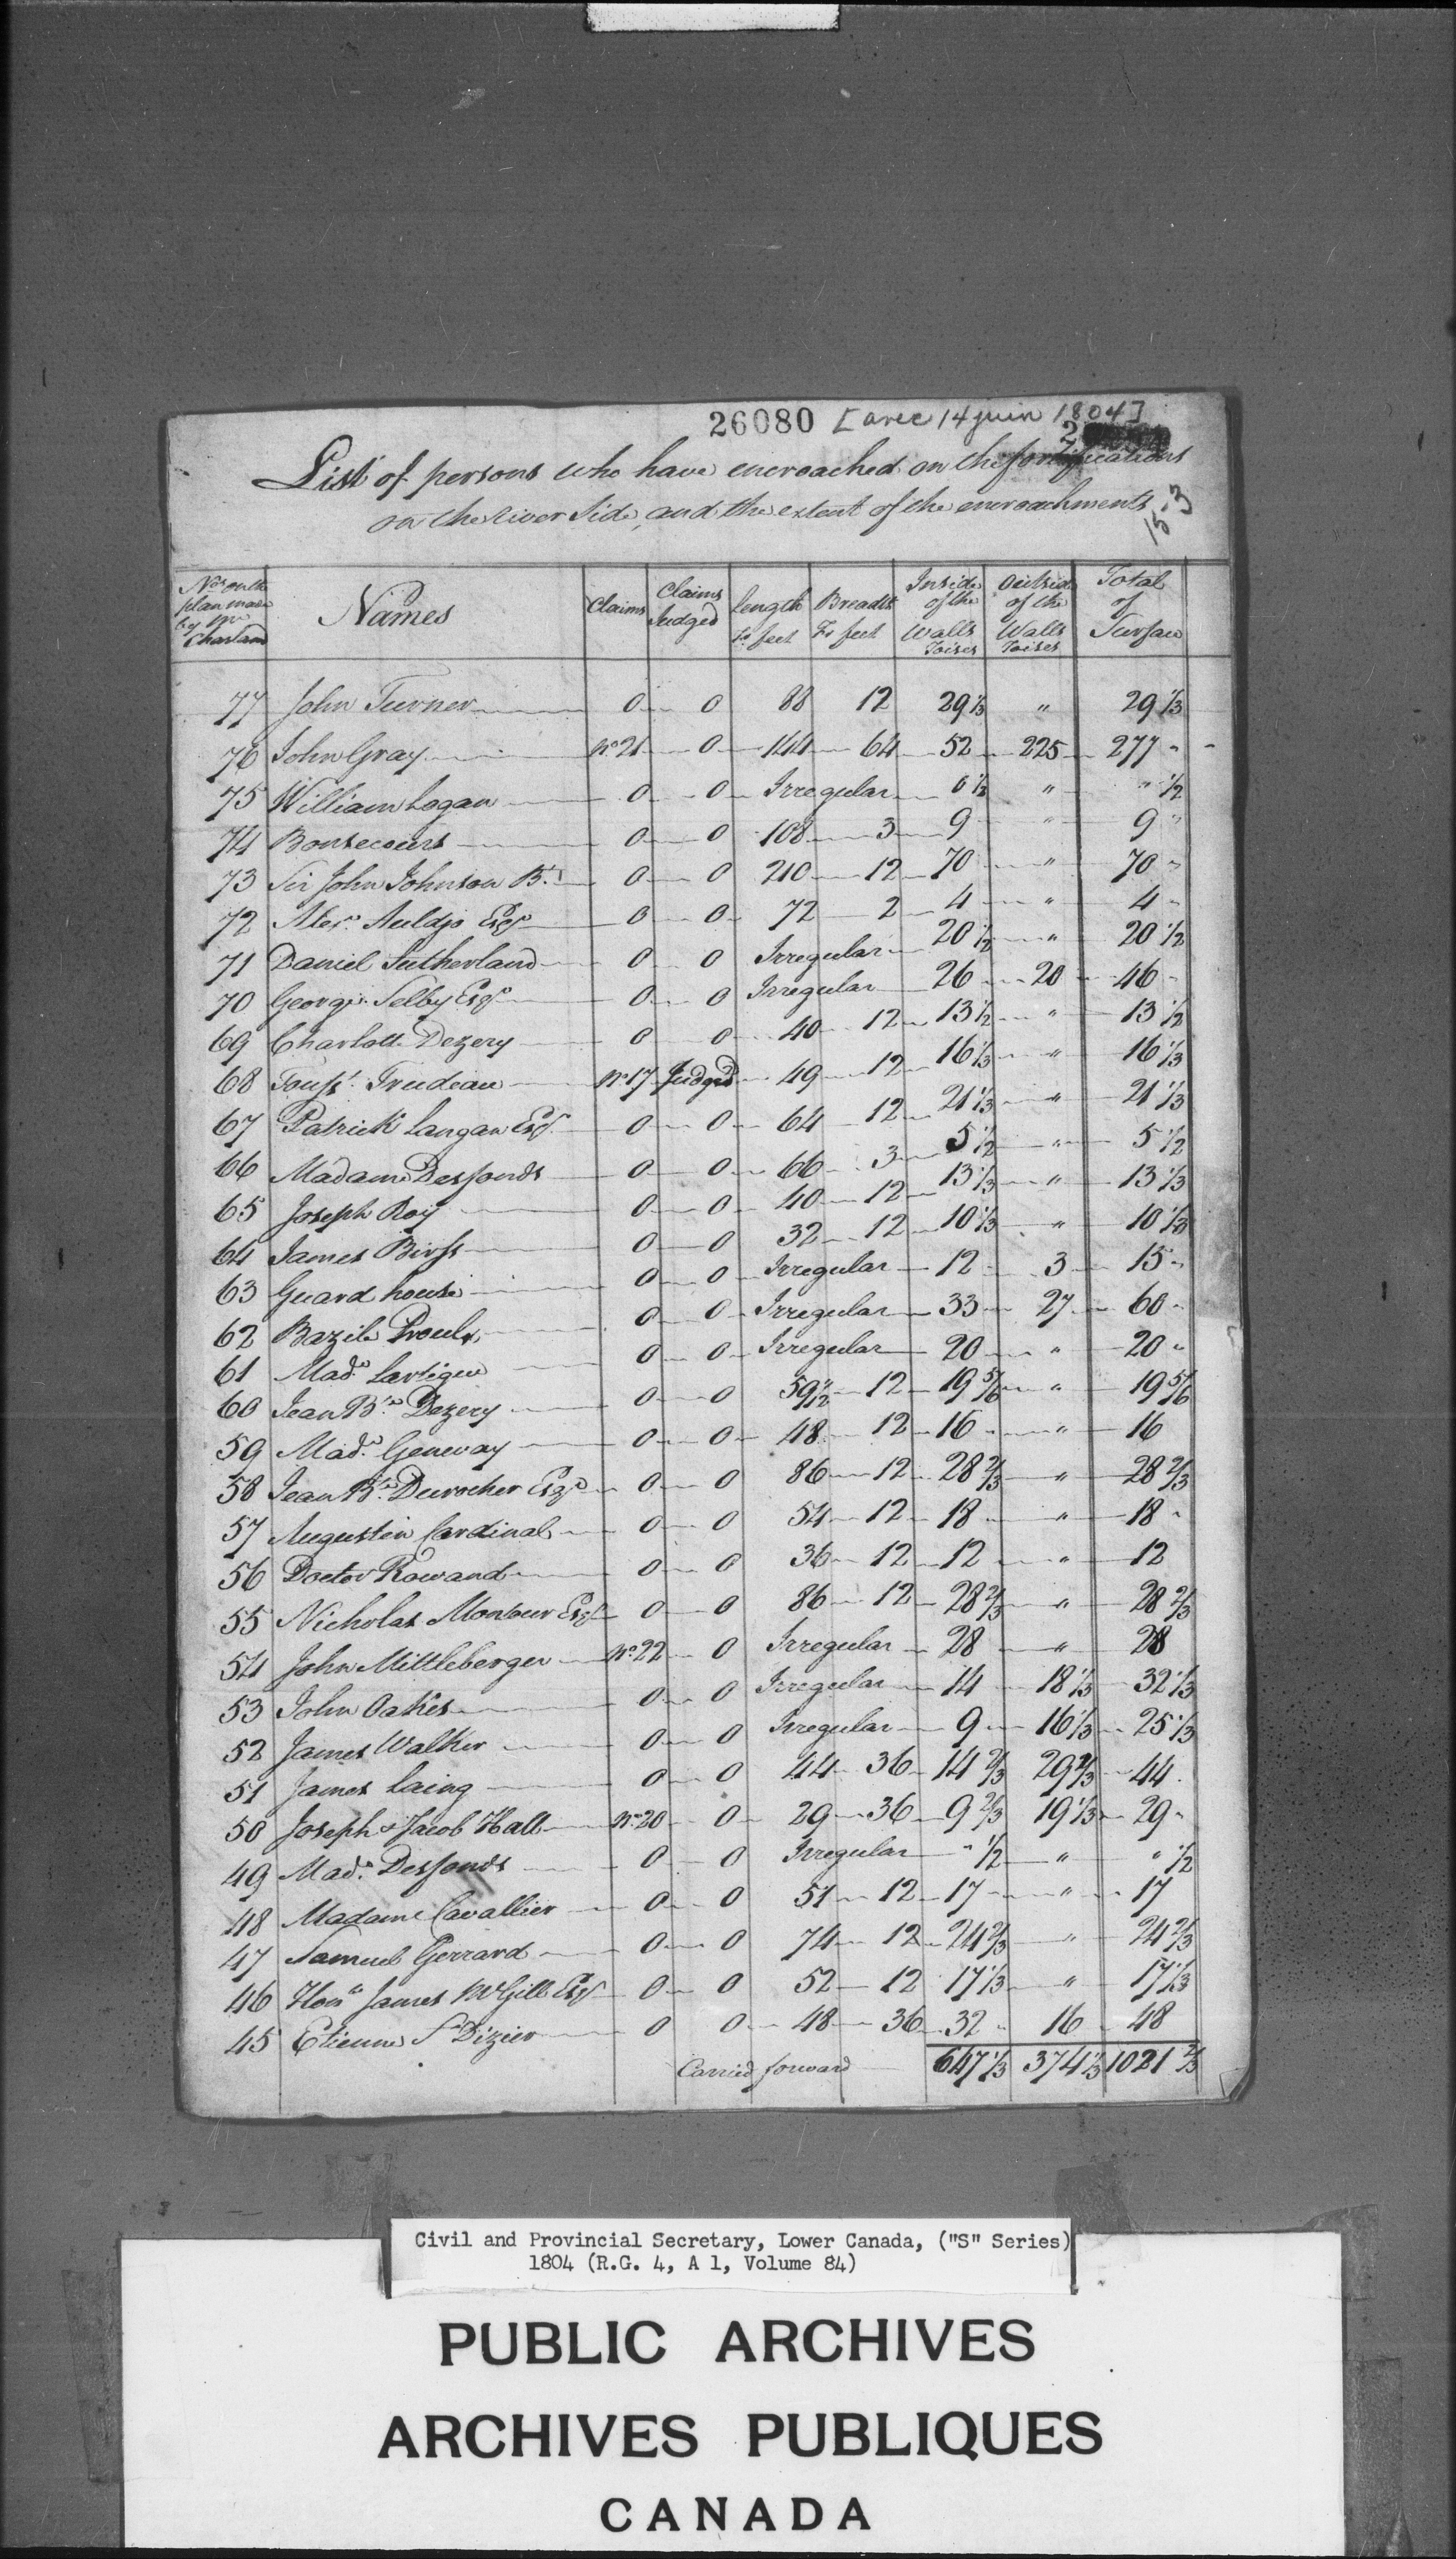 26080 [avec 14 juin 1804]
2
List of persons who have encroached on the fortifications
on the River Side, and the extent of the encroachments
15-3
Nos. on the plan made by Mr Charland | Names | Claims | Claims Judged | Length Fr feet | Breadth Fr feet | Inside of the Walls Toises | Outside of the Walls Toises | Total of Surface
77 John Turner 0 0 88 12 29 1/3 " 29 1/3
76 John Gray No. 21 0 144 64 52 225 277 "
75 William Logan 0 0 Irregular 0 1/2 " " 1/2
74 Bonsecours 0 0 108 3 9 " 9 "
73 Sir John Johnson Bt. 0 0 210 12 70 " 70 "
72 Alexr. Auldjo Esqr 0 0 72 2 4 " 4 "
71 Daniel Sutherland 0 0 Irregular 20 1/2 " 20 1/2
70 George Selby Esqr 0 0 Irregular 26 20 46 "
69 Charlotte Dezery 0 0 40 12 13 1/2 " 13 1/2
68 Touss't. Trudeau No. 17 Judged 49 12 16 1/3 " 16 1/3
67 Patrick Langan Esqr. 0 0 64 12 21 1/3 " 21 1/3
66 Madame Desfonds 0 0 66 3 5 1/2 " 5 1/2
65 Joseph Roy 0 0 40 12 13 1/3 " 13 1/3
64 James Birss 0 0 32 12 10 1/3 " 10 1/3
63 Guard house 0 0 Irregular 12 3 15 "
62 Bazile Proulx 0 0 Irregular 33 27 60 "
61 Made. Lartigue 0 0 Irregular 20 " 20 "
60 Jean Bte. Dezery 0 0 59 1/2 12 19 5/6 " 19 5/6
59 Made. Geneway 0 0 48 12 16 " 16
58 Jean Bte. Durocher Esqr 0 0 86 12 28 2/3 " 28 2/3
57 Augustin Cardinal 0 0 54 12 18 " 18 "
56 Doctor Rowand 0 0 36 12 12 " 12
55 Nicholas Montour Esqr 0 0 86 12 28 2/3 " 28 2/3
54 John Mittleberger No. 22 0 Irregular 28 " 28
53 John Oakes 0 0 Irregular 14 18 1/3 32 1/3
52 James Walker 0 0 Irregular 9 16 1/3 25 1/3
51 James Laing 0 0 44 36 14 2/3 29 2/3 44
50 Joseph & Jacob Hall No. 20 0 29 36 9 2/3 19 1/3 29 "
49 Made. Desfonds 0 0 Irregular " 1/2 " " 1/2
48 Madame Cavallier 0 0 51 12 17 " 17
47 Samuel Gerrard 0 0 74 12 24 2/3 " 24 2/3
46 Honle James McGill Esqr 0 0 52 12 17 1/3 " 17 1/3
45 Etienne St Dizier 0 0 48 36 32 16 48
Carried forward 647 1/3 374 1/3 1021 2/3
Civil and Provincial Secretary, Lower Canada, ("S" Series)
1804 (R.G. 4, A 1, Volume 84)
PUBLIC ARCHIVES
ARCHIVES PUBLIQUES
CANADA